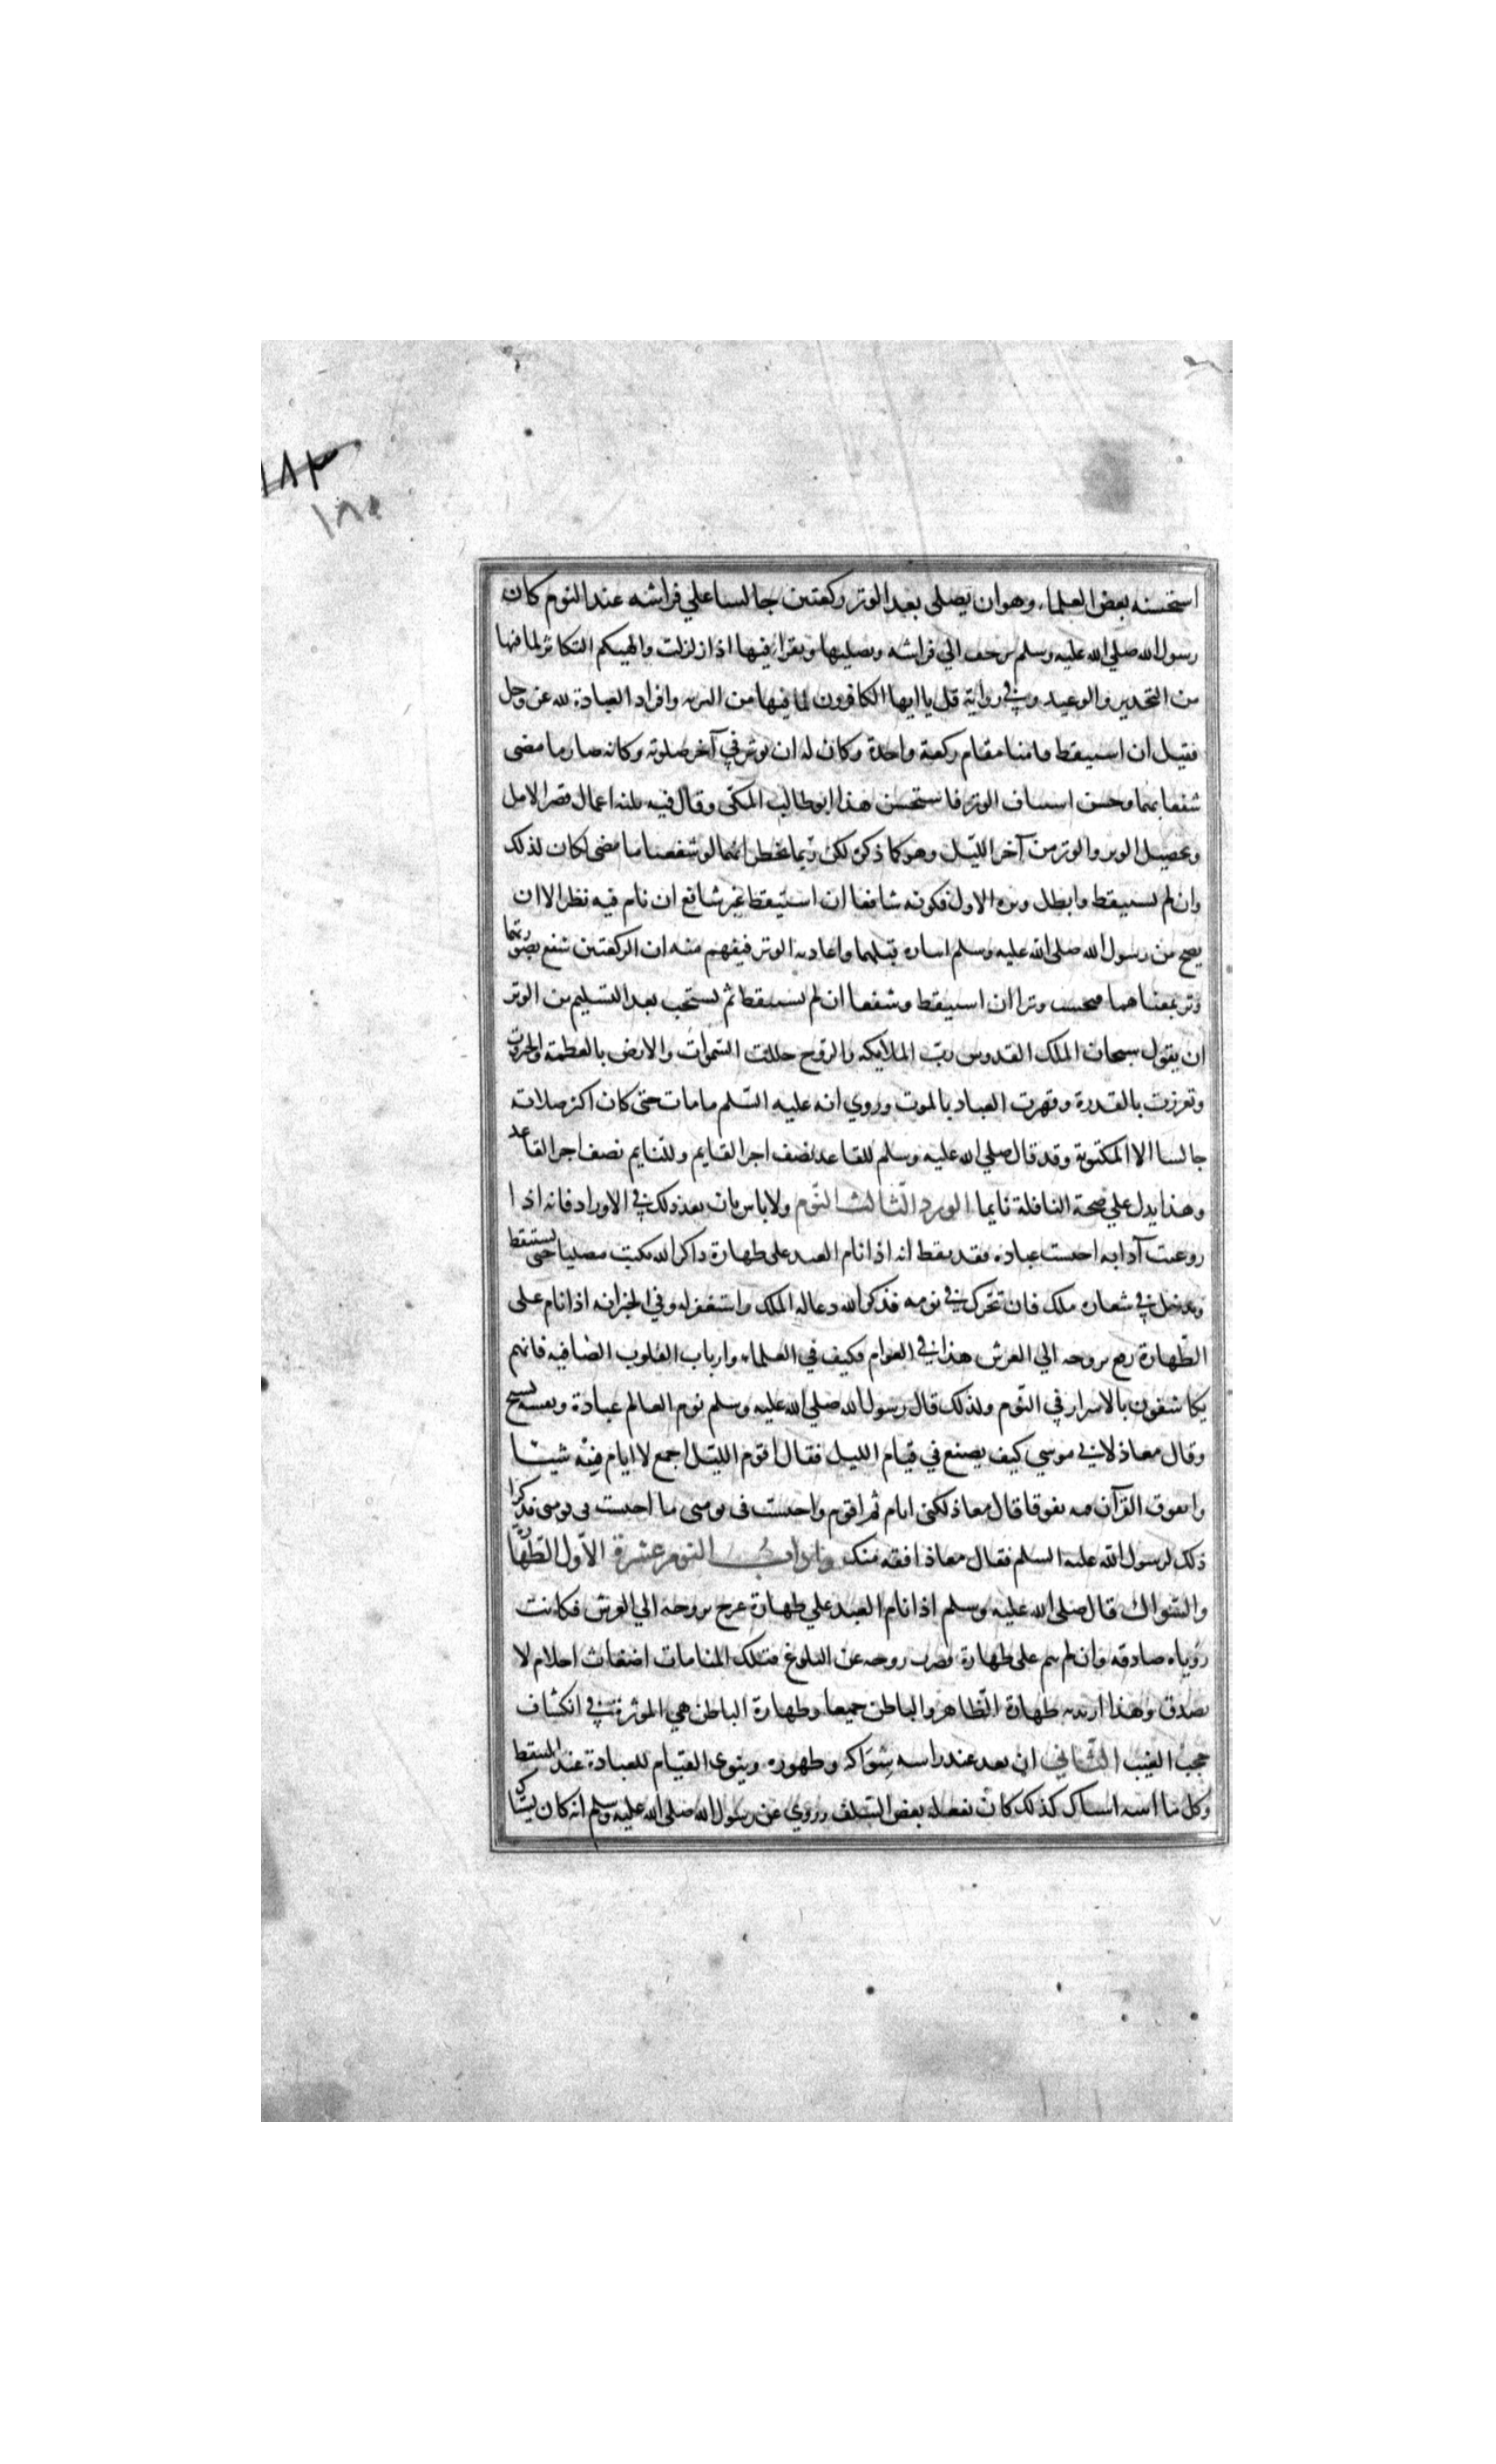 ١٨٣
١٨٥
استحسنه بعض العلماء وهو ان يصلى بعد الوتر ركعتين جالسا علي فراشه عند النوم كان
رسول الله صلي الله عليه وسلم يزحف الي فراشه ويصليها ويقراء فيها اذا زلزلت والهيكم التكاثر لما فيها
من التحذير والوعيد وفي رواية قل يا ايها الكافرون لما فيها من التبريه وافراد العبادة لله عز وجل
فقيل ان استيقظ قامتا مقام ركعة واحدة وكان له ان يوتر في آخر صلوته وكانه صار ما مضى
شفعا بهما وحسن استيناف الوتر فاستحسن هذا ابو طالب المكي وقال فيه ثلثه اعمال قصر الامل
وتحصيل الوتر والوتر من آخر الليل وهو كما ذكره لكن ربما يخطر انهما لو شفعتا ما مضى لكان لذلك
وان لم يستيقظ وابطل وتره الاول فكونه شافعا ان استيقظ غير شافع ان نام فيه نظر الا ان
يصح من رسول الله صلي الله عليه وسلم ايتاره قبلهما واعادته الوتر فيفهم منه ان الركعتين شفع بصورتهما
وتر بمعناهما فيحسب وترا ان استيقظ وشفعا ان لم يستيقظ ثم يستحب بعد التسليم من الوتر
ان يقول سبحان الملك القدوس رب الملايكه والروح جللت السموات والارض بالعظمة والجبروت
وتعززت بالقدرة وقهرت العباد بالموت وروي انه عليه السلم ما مات حتى كان اكثر صلاته
جالسا الا المكتوبة وقد قال صلي الله عليه وسلم للقاعد نصف اجر القايم وللنايم نصف اجر القاعد
وهذا يدل علي صحة النافلة نايما الورد الثالث النوم ولا باس بان يعد ذلك في الاوراد فانه اذا
روعيت آدابه احتسب عبادة فقد انه اذا نام العبد على طهارة ذاكرا لله يكتب مصليا حتى يستيقظ
ويدخل في شعاره ملك فان تحرك في نومه فذكر الله دعا له الملك واستغفر له وفي الخبر انه اذا نام على
الطهارة رفع بروحه الي العرش هذا في العوام فكيف في العلماء وارباب القلوب الصافيه فانهم
يكاشفون بالاسرار في النوم ولذلك قال رسول الله صلي الله عليه وسلم نوم العالم عبادة ونفسه تسبيح
وقال معاذ لابي موسي كيف يصنع في قيام الليل فقال اقوم الليل اجمع لا انام فيه شيئا
واتفوق القرآن فيه تفوقا قال معاذ لكني انام ثم اقوم واحتسب في نومتى ما احتسب في قومتي فذكرا
ذلك لرسول الله عليه السلم فقال معاذ افقه منك واداب النوم عشرة الاول الطهارة
والسواك قال صلى الله عليه وسلم اذا نام العبد علي طهارة عرج بروحه الي العرش فكانت
رؤياه صادقه وان لم ينم على طهارة قصرت روحه عن البلوغ فتلك المنامات اضغاث احلام لا
تصدق وهذا اريد به طهارة الظاهر والباطن جميعا وطهارة الباطن هي الموثرة في انكشاف
حجب الغيب الثاني ان يعد عند راسه سواكه وطهوره وينوى القيام للعبادة عند التيقظ
وكل ما انتبه استاك كذلك كان يفعله بعض السلف وروي عن رسول الله صلى الله عليه وسلم انه كان يستاك